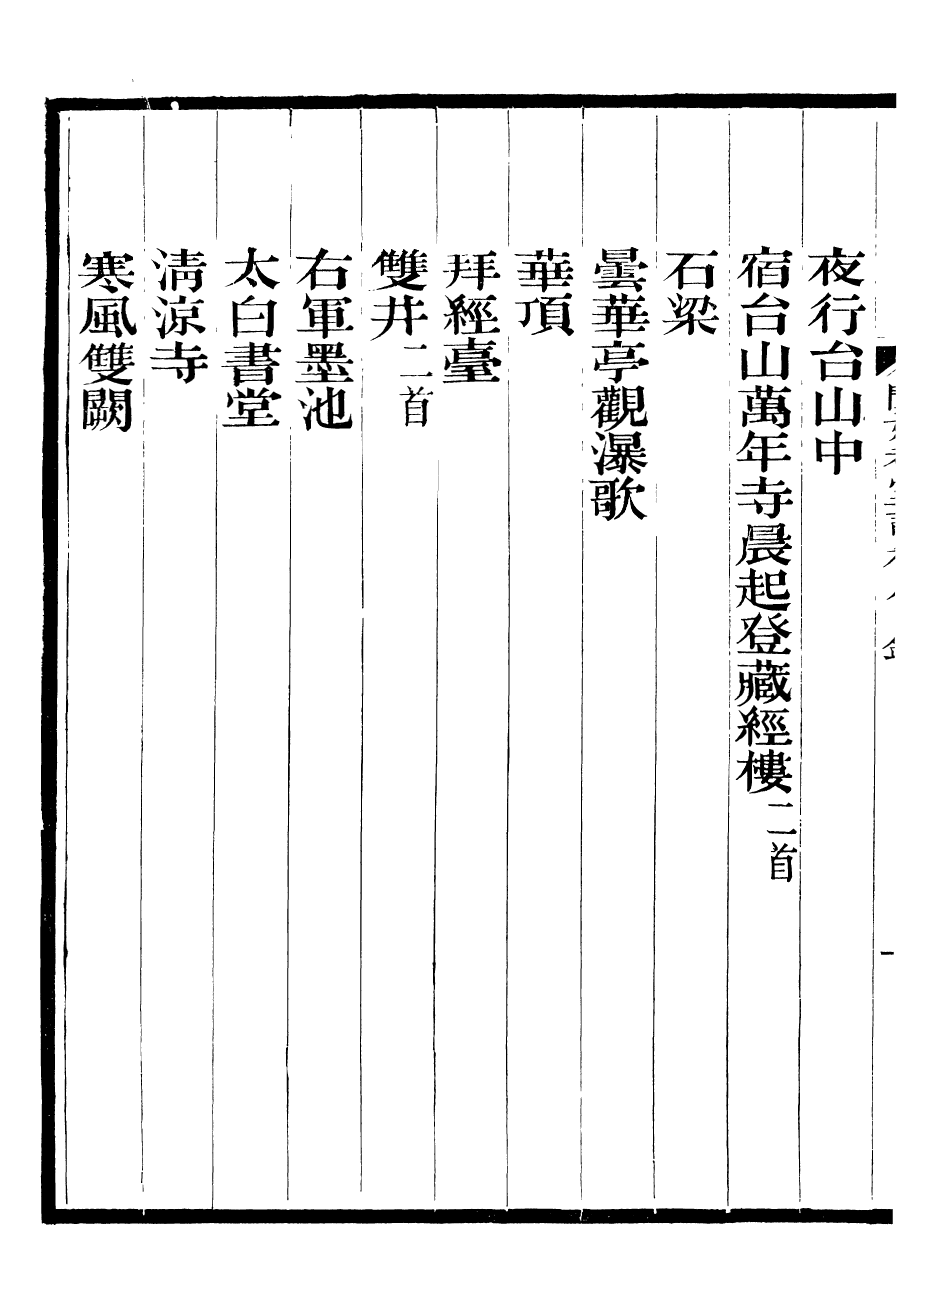 夜行台山中
宿台山萬年寺晨起登藏經樓二首
石梁
曇華亭觀瀑歌
華頂
拜經臺
雙井二首
右軍墨池
太白書堂
清涼寺
寒風雙闕